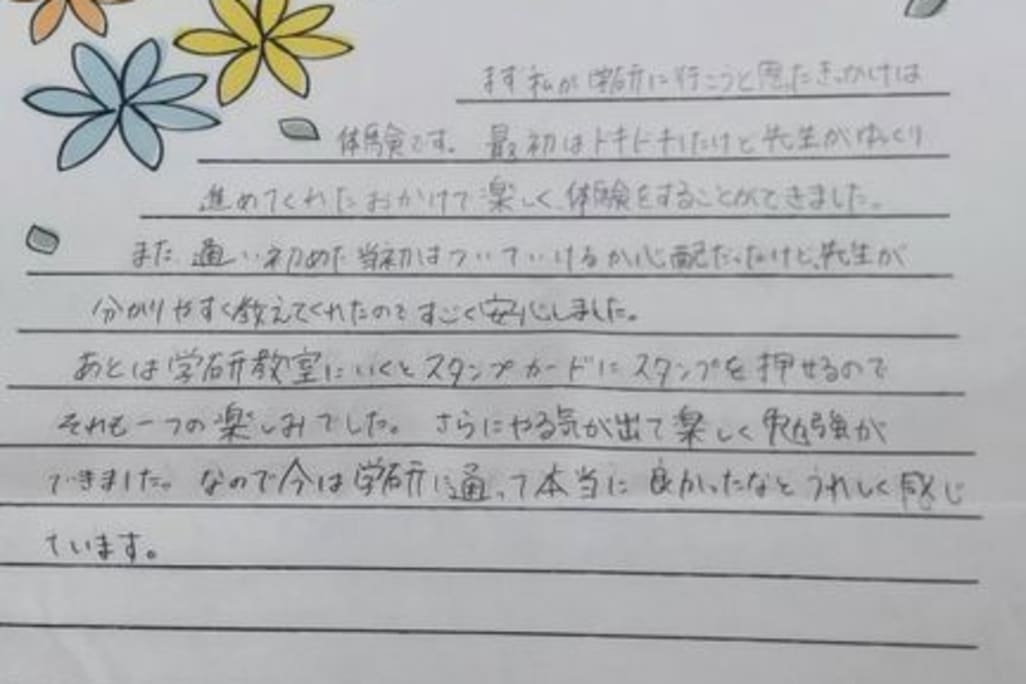 まず私が学研に行こうと思ったきっかけは
体験です。最初はドキドキしたけど先生がゆっくり
進めてくれたおかけで楽しく体験をすることができました。
また、通い初めた当初はついていけるか心配だったけど、先生が
分かりやすく教えてくれたのですごく安心しました。
あとは学研教室にいくとスタンプカードにスタンプを押せるので
それも一つの楽しみでした。さらにやる気が出て楽しく勉強が
できました。なので今は学研に通って本当に良かったなとうれしく感じ
ています。